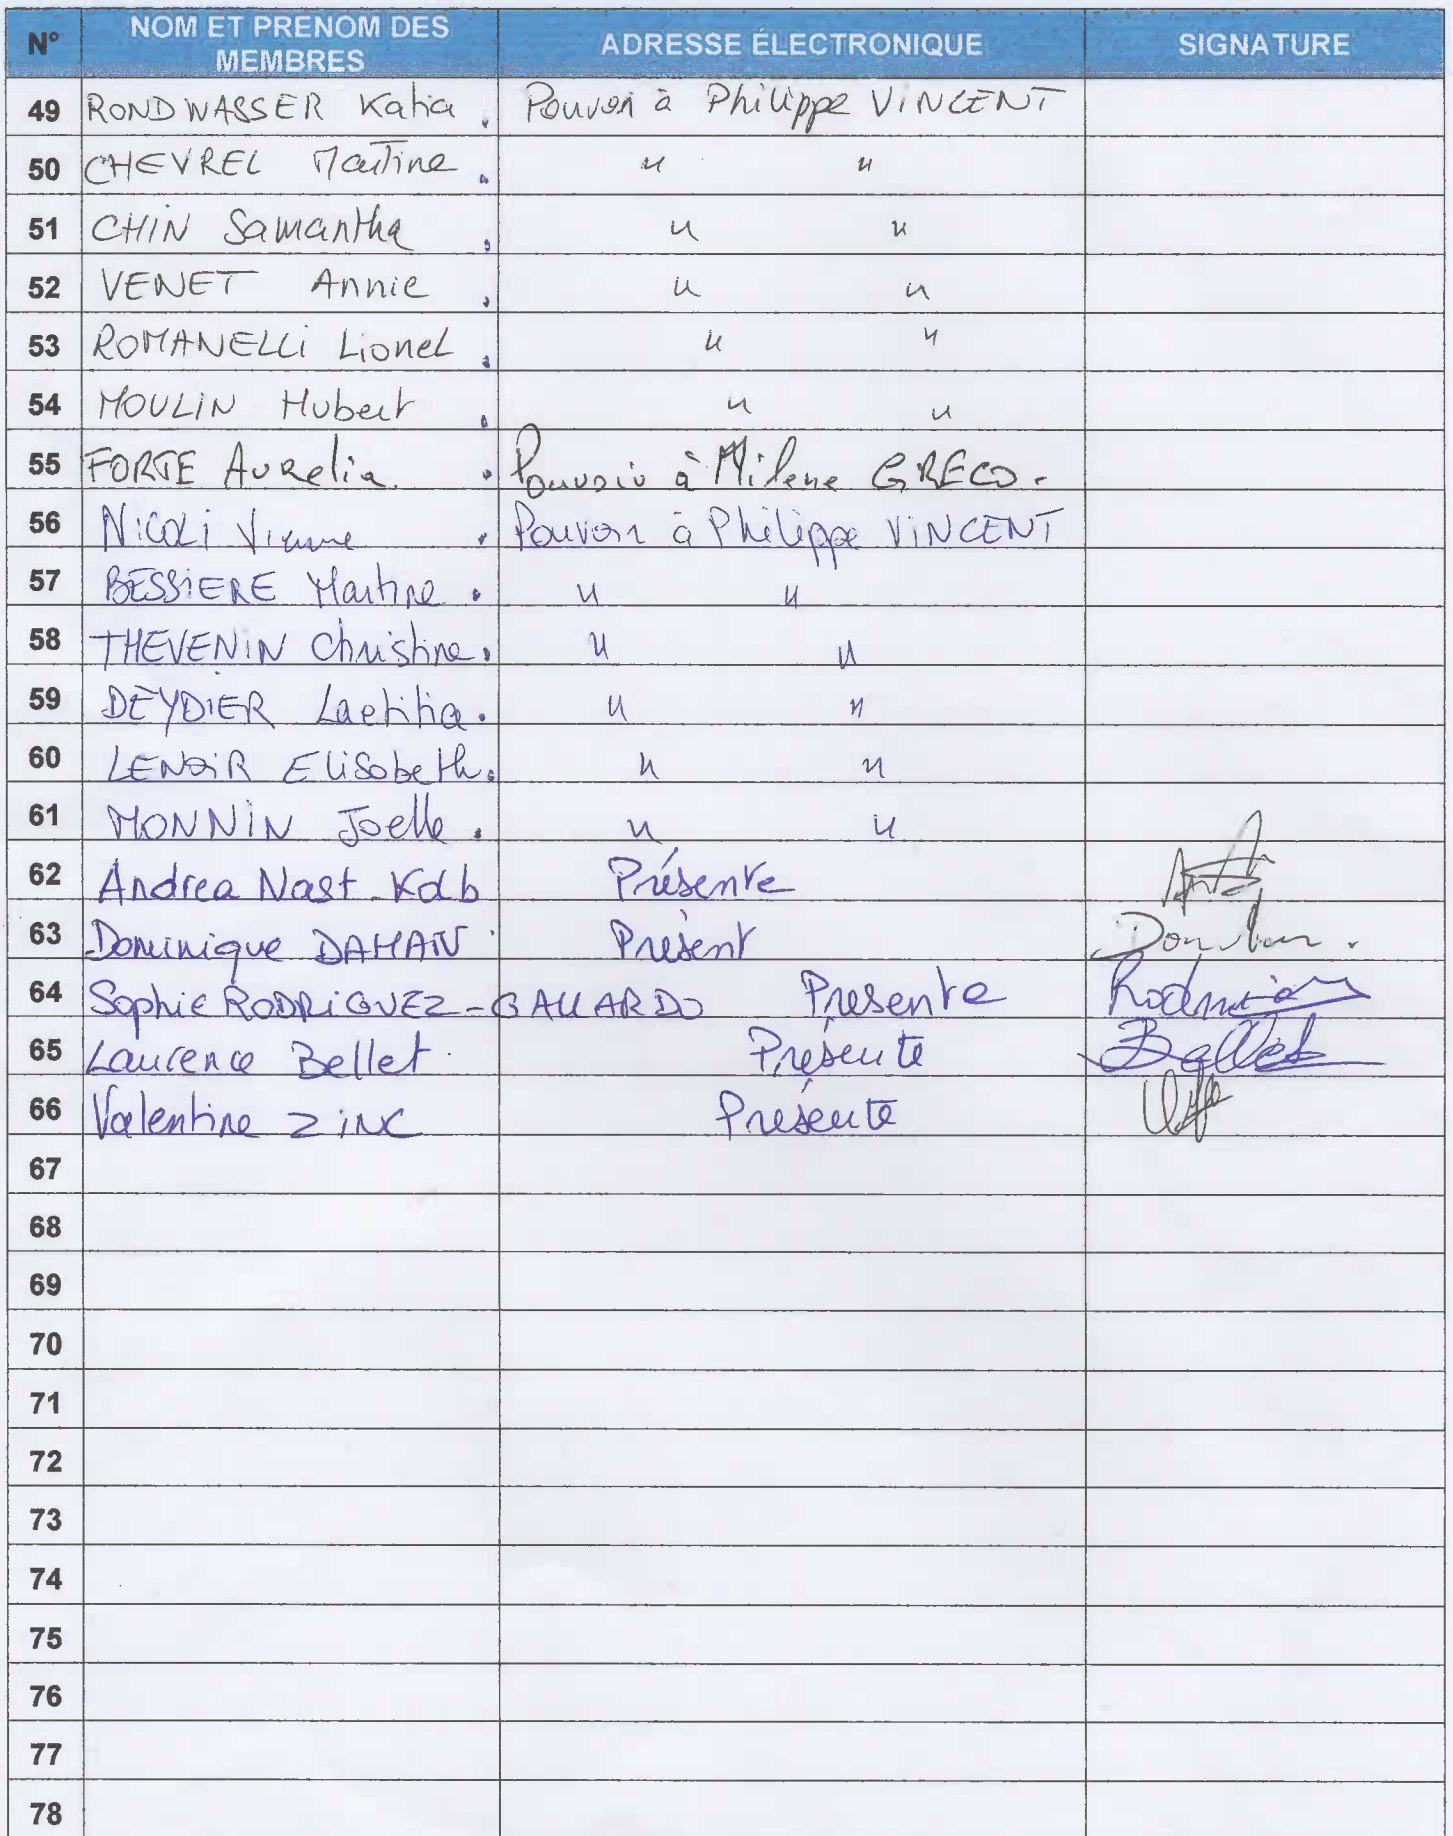 N° NOM ET PRENOM DES MEMBRES ADRESSE ÉLECTRONIQUE SIGNATURE
49 RONDWASSER Katia . Pouvoir à Philippe VINCENT
50 CHEVREL Martine . " "
51 CHIN Samantha . " "
52 VENET Annie . " "
53 ROMANELLI Lionel . " "
54 MOULIN Hubert . " "
55 FORTE Aurelia . Pouvoir à Milene GRECO.
56 NICOLI . Pouvoir à Philippe VINCENT
57 BESSIERE Martine . " "
58 THEVENIN Christine . " "
59 DEYDIER Laetitia . " "
60 LENOIR Elisabeth . " "
61 MONNIN Joelle . " "
62 Andrea Nast-Kolb Présente
63 Dominique DAHAN Présent
64 Sophie RODRIGUEZ-GALLARDO Presente
65 Laurence Bellet Présente Bellet
66 Valentine ZINK Présente
67
68
69
70
71
72
73
74
75
76
77
78